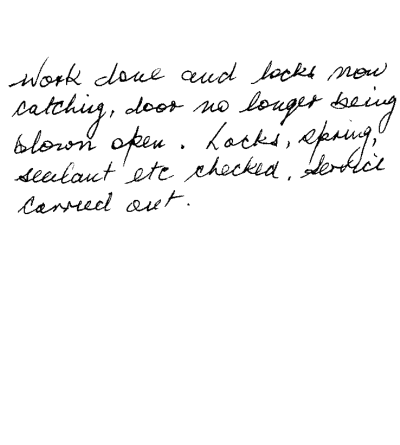 Work done and locks now
catching, door no longer being
blown open. Locks, spring,
sealant etc checked. Service
carried out.